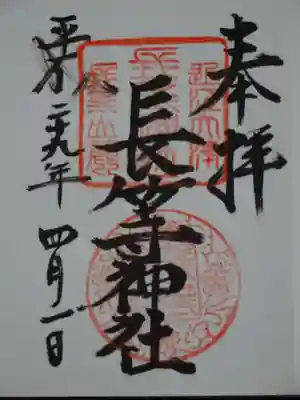 奉拝
近江大津
長等神社
平成二十九年 四月一日